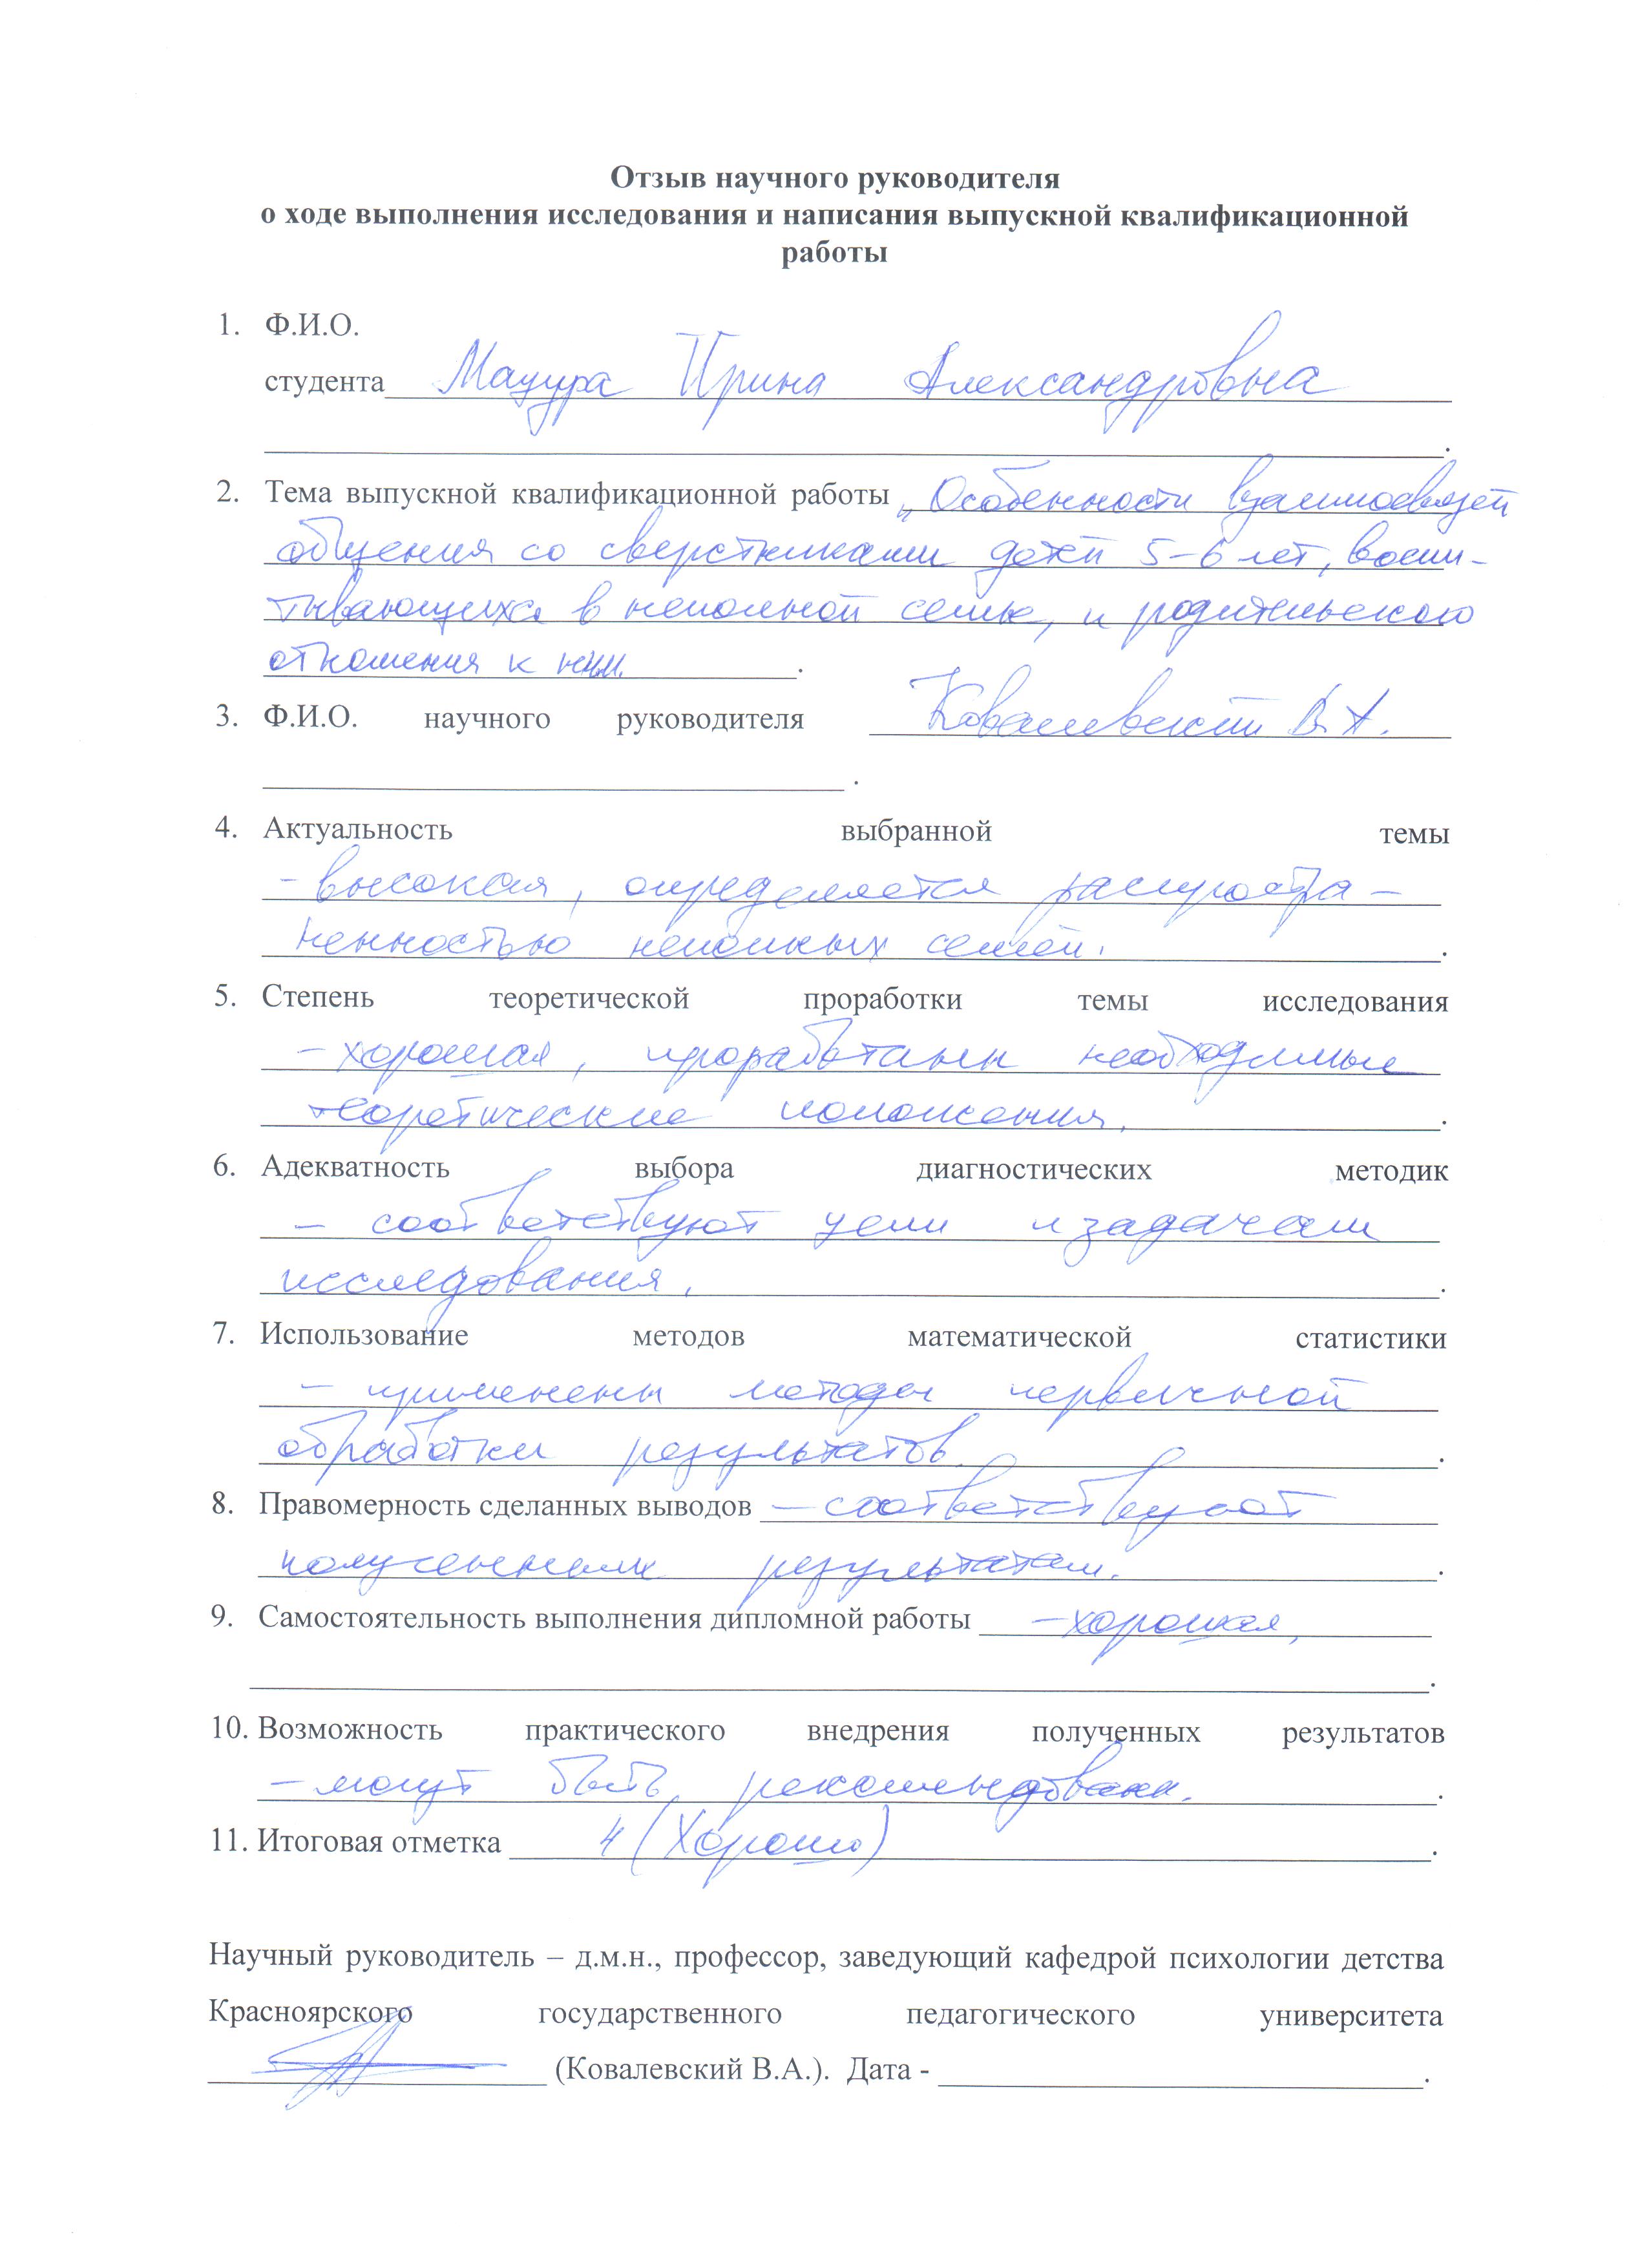 Отзыв научного руководителя
о ходе выполнения исследования и написания выпускной квалификационной
работы
1. Ф.И.О.
студента Мацура Ирина Александровна
.
2. Тема выпускной квалификационной работы „Особенности взаимосвязей
общения со сверстниками детей 5-6 лет, воспи-
тывающихся в неполной семье, и родительского
отношения к ним.
3. Ф.И.О. научного руководителя Ковалевский В.А.
.
4. Актуальность выбранной темы
- высокая, определяется распростра-
ненностью неполных семей.
5. Степень теоретической проработки темы исследования
- хорошая, проработаны необходимые
теоретические положения.
6. Адекватность выбора диагностических методик
- соответствуют цели и задачам
исследования.
7. Использование методов математической статистики
- применены методы первичной
обработки результатов.
8. Правомерность сделанных выводов - соответствуют
полученным результатам.
9. Самостоятельность выполнения дипломной работы - хорошая,
.
10. Возможность практического внедрения полученных результатов
- могут быть рекомендованы.
11. Итоговая отметка 4 (Хорошо).
Научный руководитель – д.м.н., профессор, заведующий кафедрой психологии детства
Красноярского государственного педагогического университета
(Ковалевский В.А.). Дата - .